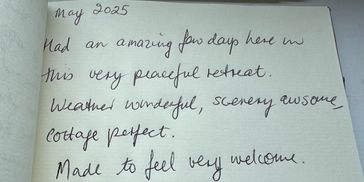 May 2025
Had an amazing few days here in
this very peaceful retreat.
Weather wonderful, scenery awsome,
cottage perfect.
Made to feel very welcome.